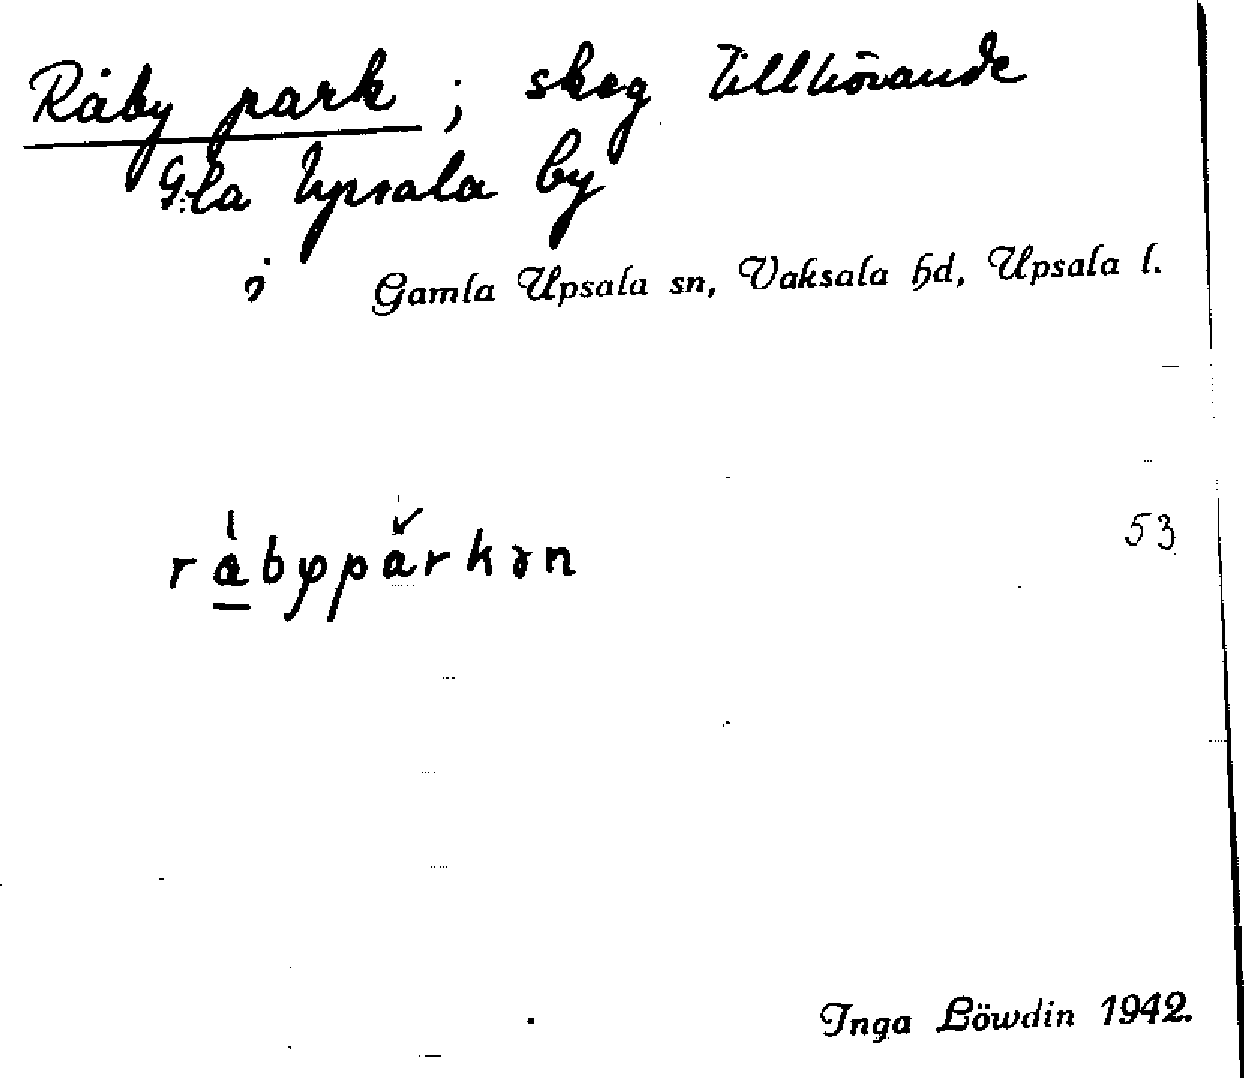 Råby park ; skog tillhörande
G:la Upsala by
i Gamla Upsala sn, Vaksala hd, Upsala l.
råbyparkən
53
Inga Löwdin 1942.